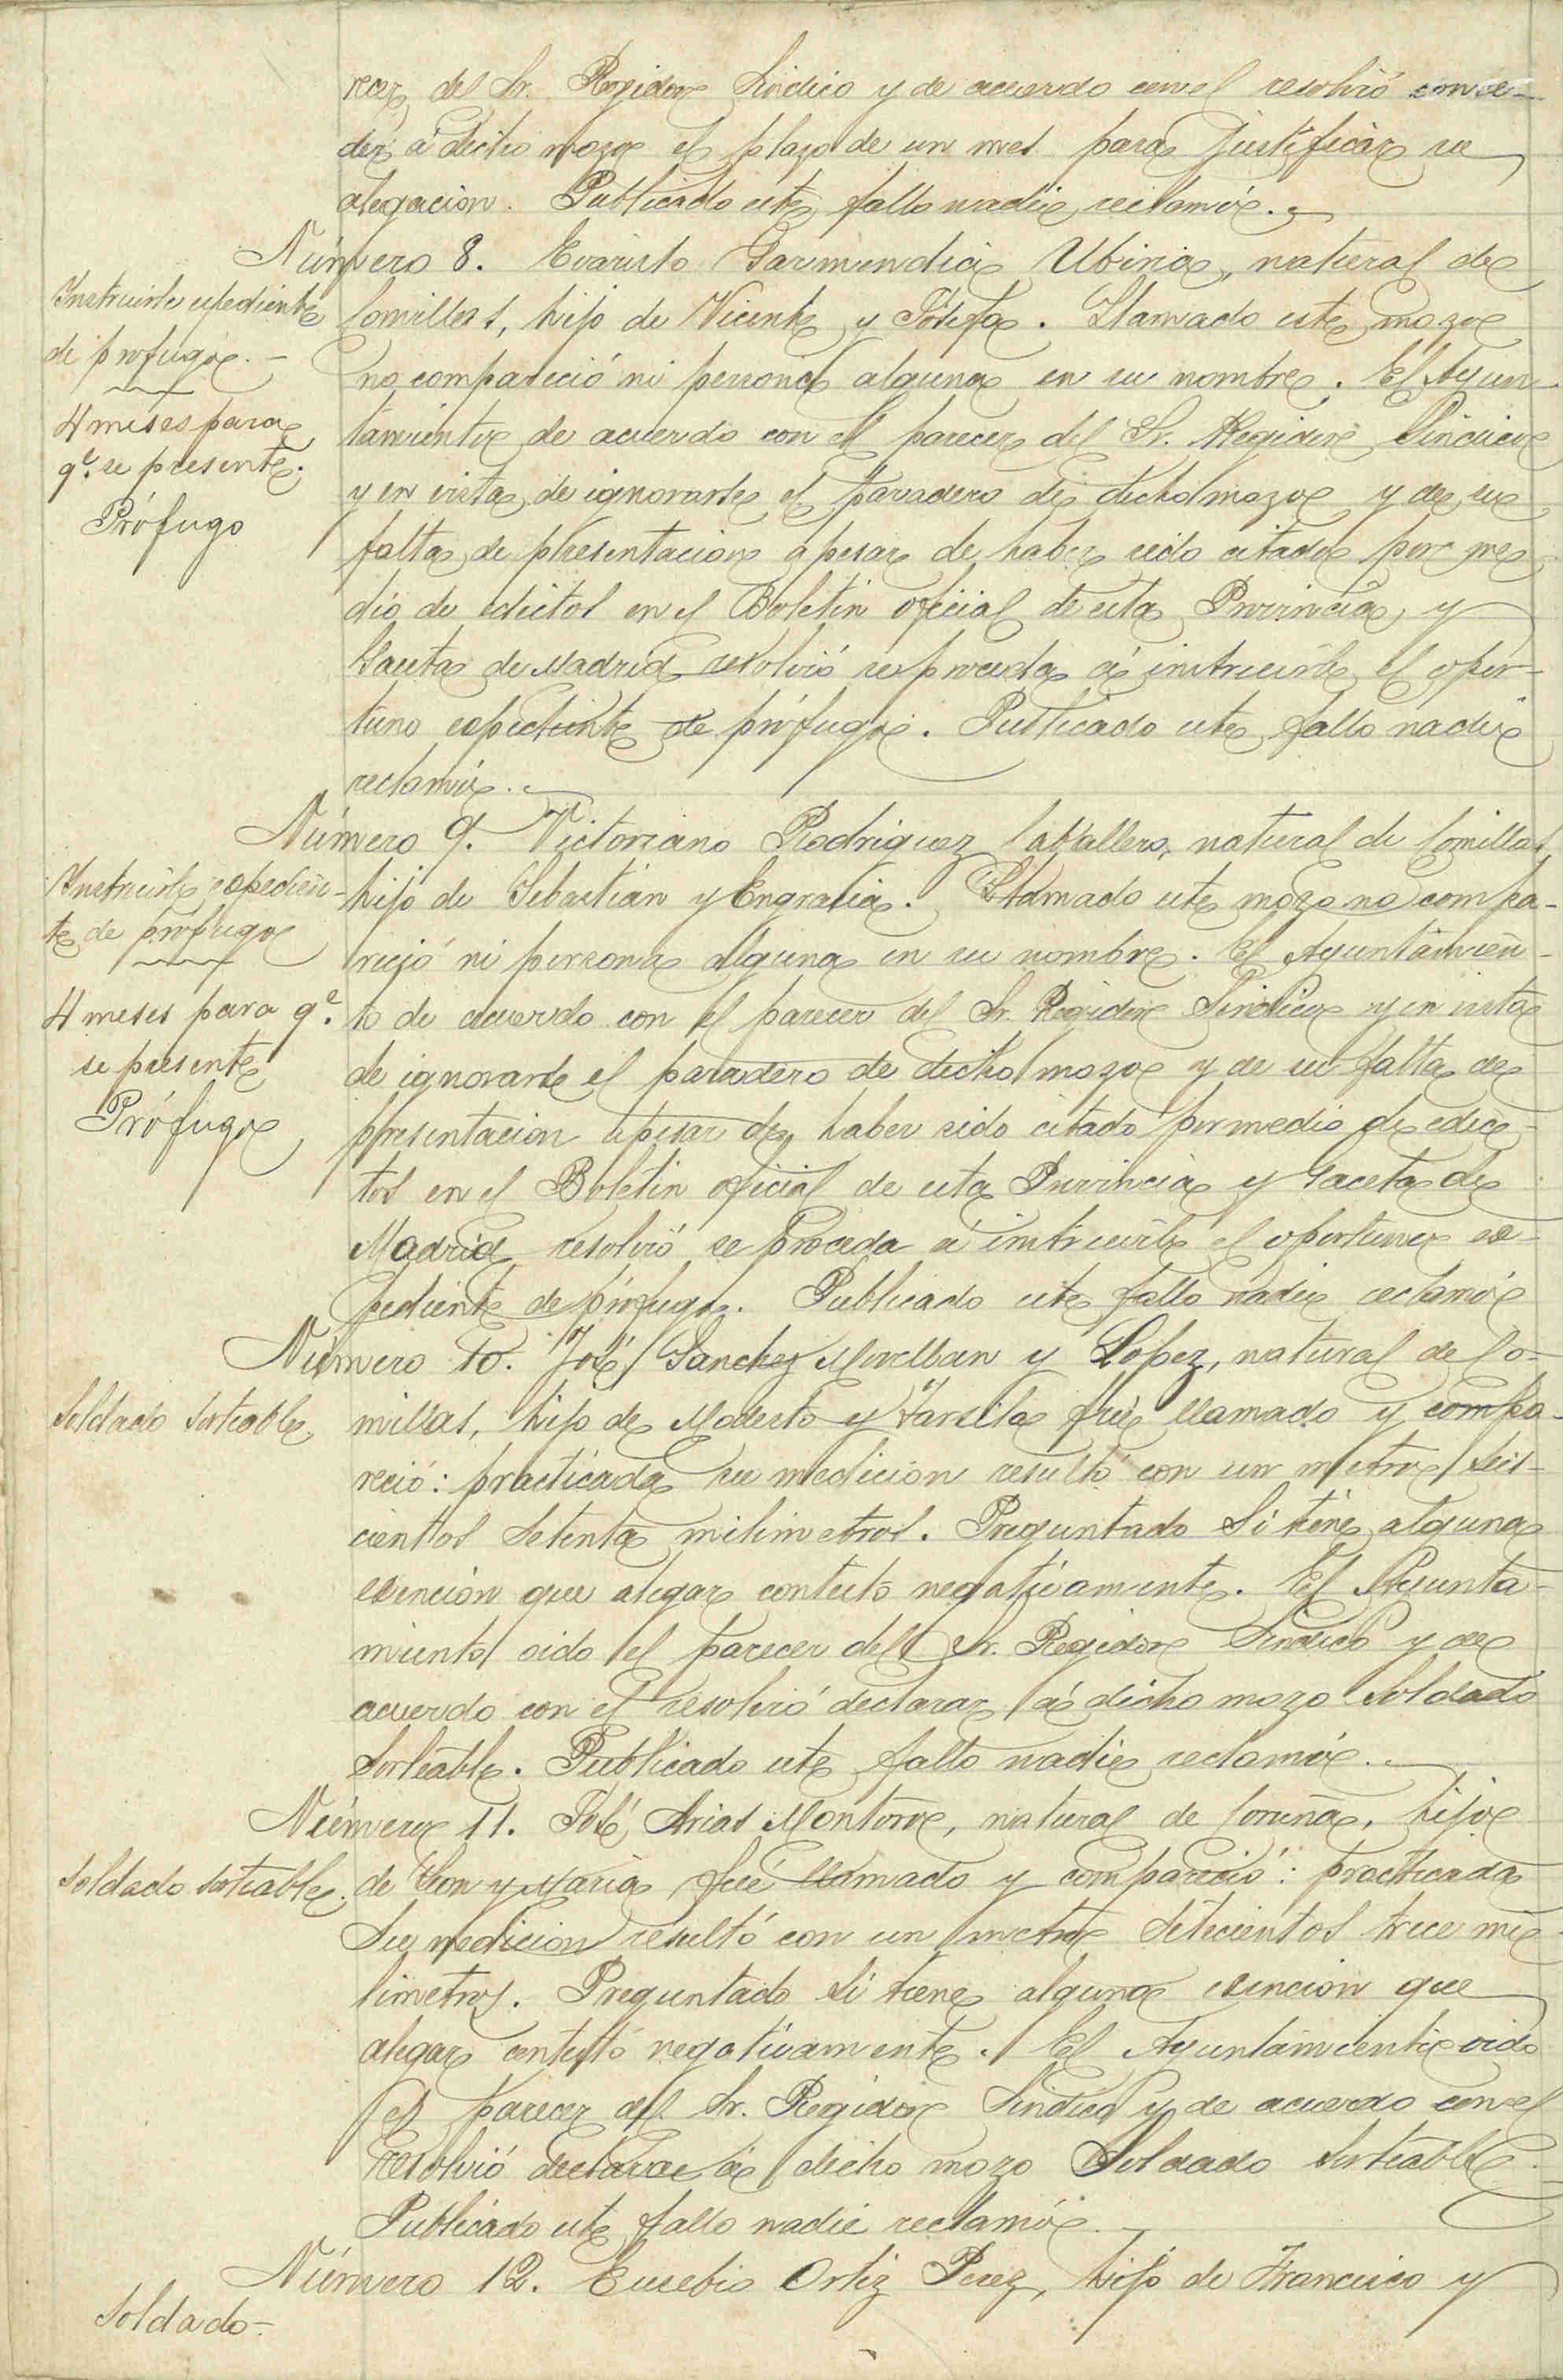 recer del Sr. Regidor Sindico y de acuerdo con el resolvió conce-
der á dicho mozo el plazo de un mes para justificar su
alegacion. Publicado este fallo nadie reclamó.
Número 8. Evaristo Garmendia Ubiria, natural de
Instruirle espediente
de prófugo.-
4 meses para
qe. se presente.
Prófugo
Comillas, hijo de Vicente y Josefa. Llamado este mozo
no compareció ni persona alguna en su nombre. El Ayun-
tamiento de acuerdo con el parecer del Sr. Regidor Sindico
y en vista de ignorarse el paradero de dicho mozo y de su
falta de presentacion apesar de haber sido citado por me
dio de edictos en el Boletin oficial de esta Provincia y
Gaceta de Madrid resolvió se proceda á instruirle el opor-
tuno espediente de prófugo. Publicado este fallo nadie
reclamó.
Número 9. Victoriano Rodriguez Caballero, natural de Comillas
Instruirle espedien-
te de prófugo
4 meses para qe.
se presente
Prófugo
hijo de Sebastián y Engracia. Llamado este mozo no compa-
reció ni persona alguna en su nombre. El Ayuntamien-
to de acuerdo con el parecer del Sr. Regidor Sindico y en vista
de ignorarse el paradero de dicho mozo y de su falta de
presentacion apesar de haber sido citado por medio de edic-
tos en el Boletin oficial de esta Provincia y Gaceta de
Madrid resolvió se proceda á instruirle el oportuno es-
pediente de prófugo. Publicado este fallo nadie reclamó
Número 10. José Sanchez Movellan y López, natural de Co-
Soldado Sorteable
millas, hijo de Modesto y Tarsila fué llamado y compa-
reció: practicada su medición resultó con un metro seis-
cientos setenta milimetros. Preguntado si tiene alguna
esención que alegar contestó negativamente. El Ayunta-
miento oido el parecer del Sr. Regidor Sindico y de
acuerdo con el resolvió declarar á dicho mozo Soldado
Sorteable. Publicado este fallo nadie reclamó.
Número 11. José Arias Montoro, natural de Coruña, hijo
Soldado Sorteable.
de Leon y Maria fué llamado y compareció: practicada
su medicion resultó con un metro setecientos trece mi-
limetros. Preguntado si tiene alguna esencion que
alegar contestó negativamente. El Ayuntamiento oido
el parecer del Sr. Regidor Sindico y de acuerdo con el
resolvió declarar á dicho mozo Soldado Sorteable.
Publicado este fallo nadie reclamó.
Número 12. Eusebio Ortiz Perez, hijo de Francisco y
Soldado-